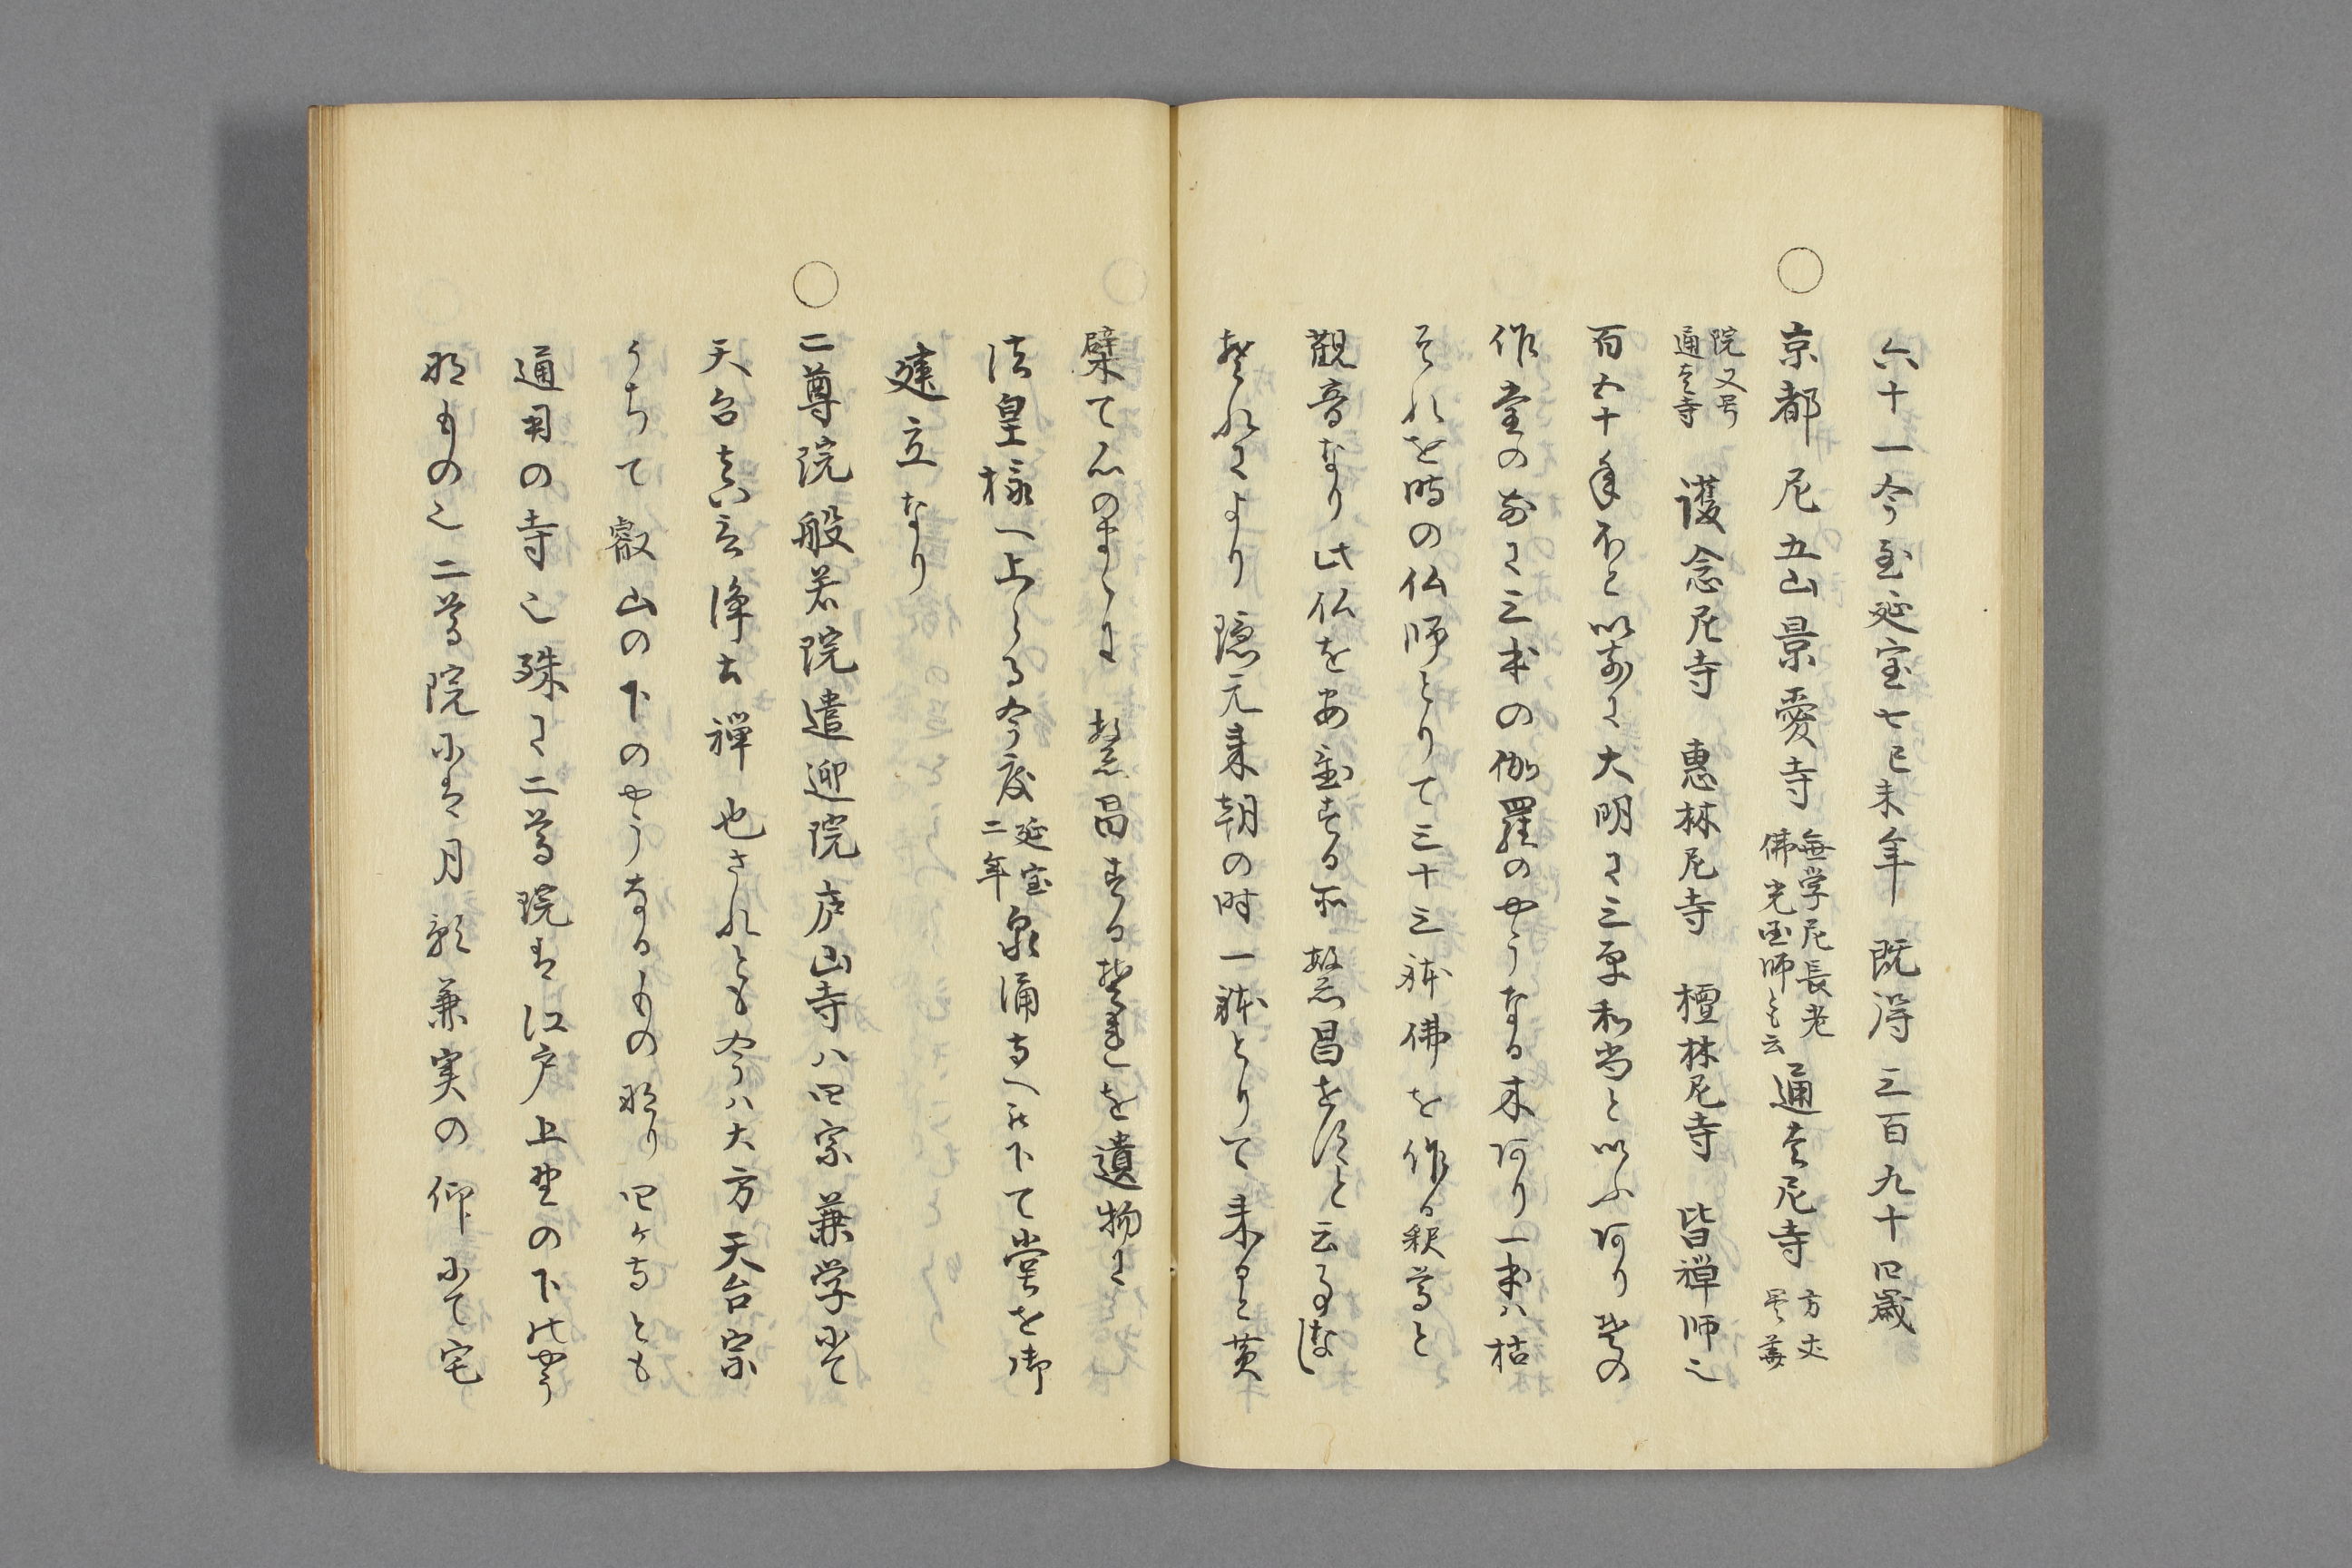 六十一今至延宝七己未年既得三百九十四歳
○京都尼五山景愛寺 無学尼長老 佛光国師とも云 通玄尼寺 方丈
院又号 通玄寺 護念尼寺 惠林尼寺 檀林尼寺 皆禅師也
百五十年不と以前に大明に三平和尚と以ふ阿り其の
作堂の前に三本の伽羅のやうなる木阿り一本ハ枯
それを時の仏師とりて三十三躰佛を作る釈尊と
觀音なり此仏を安置する所繁昌を须と云事なし
それにより隠元来朝の時一躰とりて来ると黄
檗て心のまゝに繁昌する其を遺物に
法皇様へ上らる今度 延宝二年 泉涌寺へ被下て堂を御
建立なり
○二尊院般若院遣迎院庐山寺ハ四宗兼学にて
天台真言浄土禅也されとも今ハ大方天台宗
うちて叡山の下のやうなるもの那り四ケ寺とも
通用の寺也殊に二尊院は江戸上野の下のやう
那もの也二尊院には月輪兼実の仰にて宅